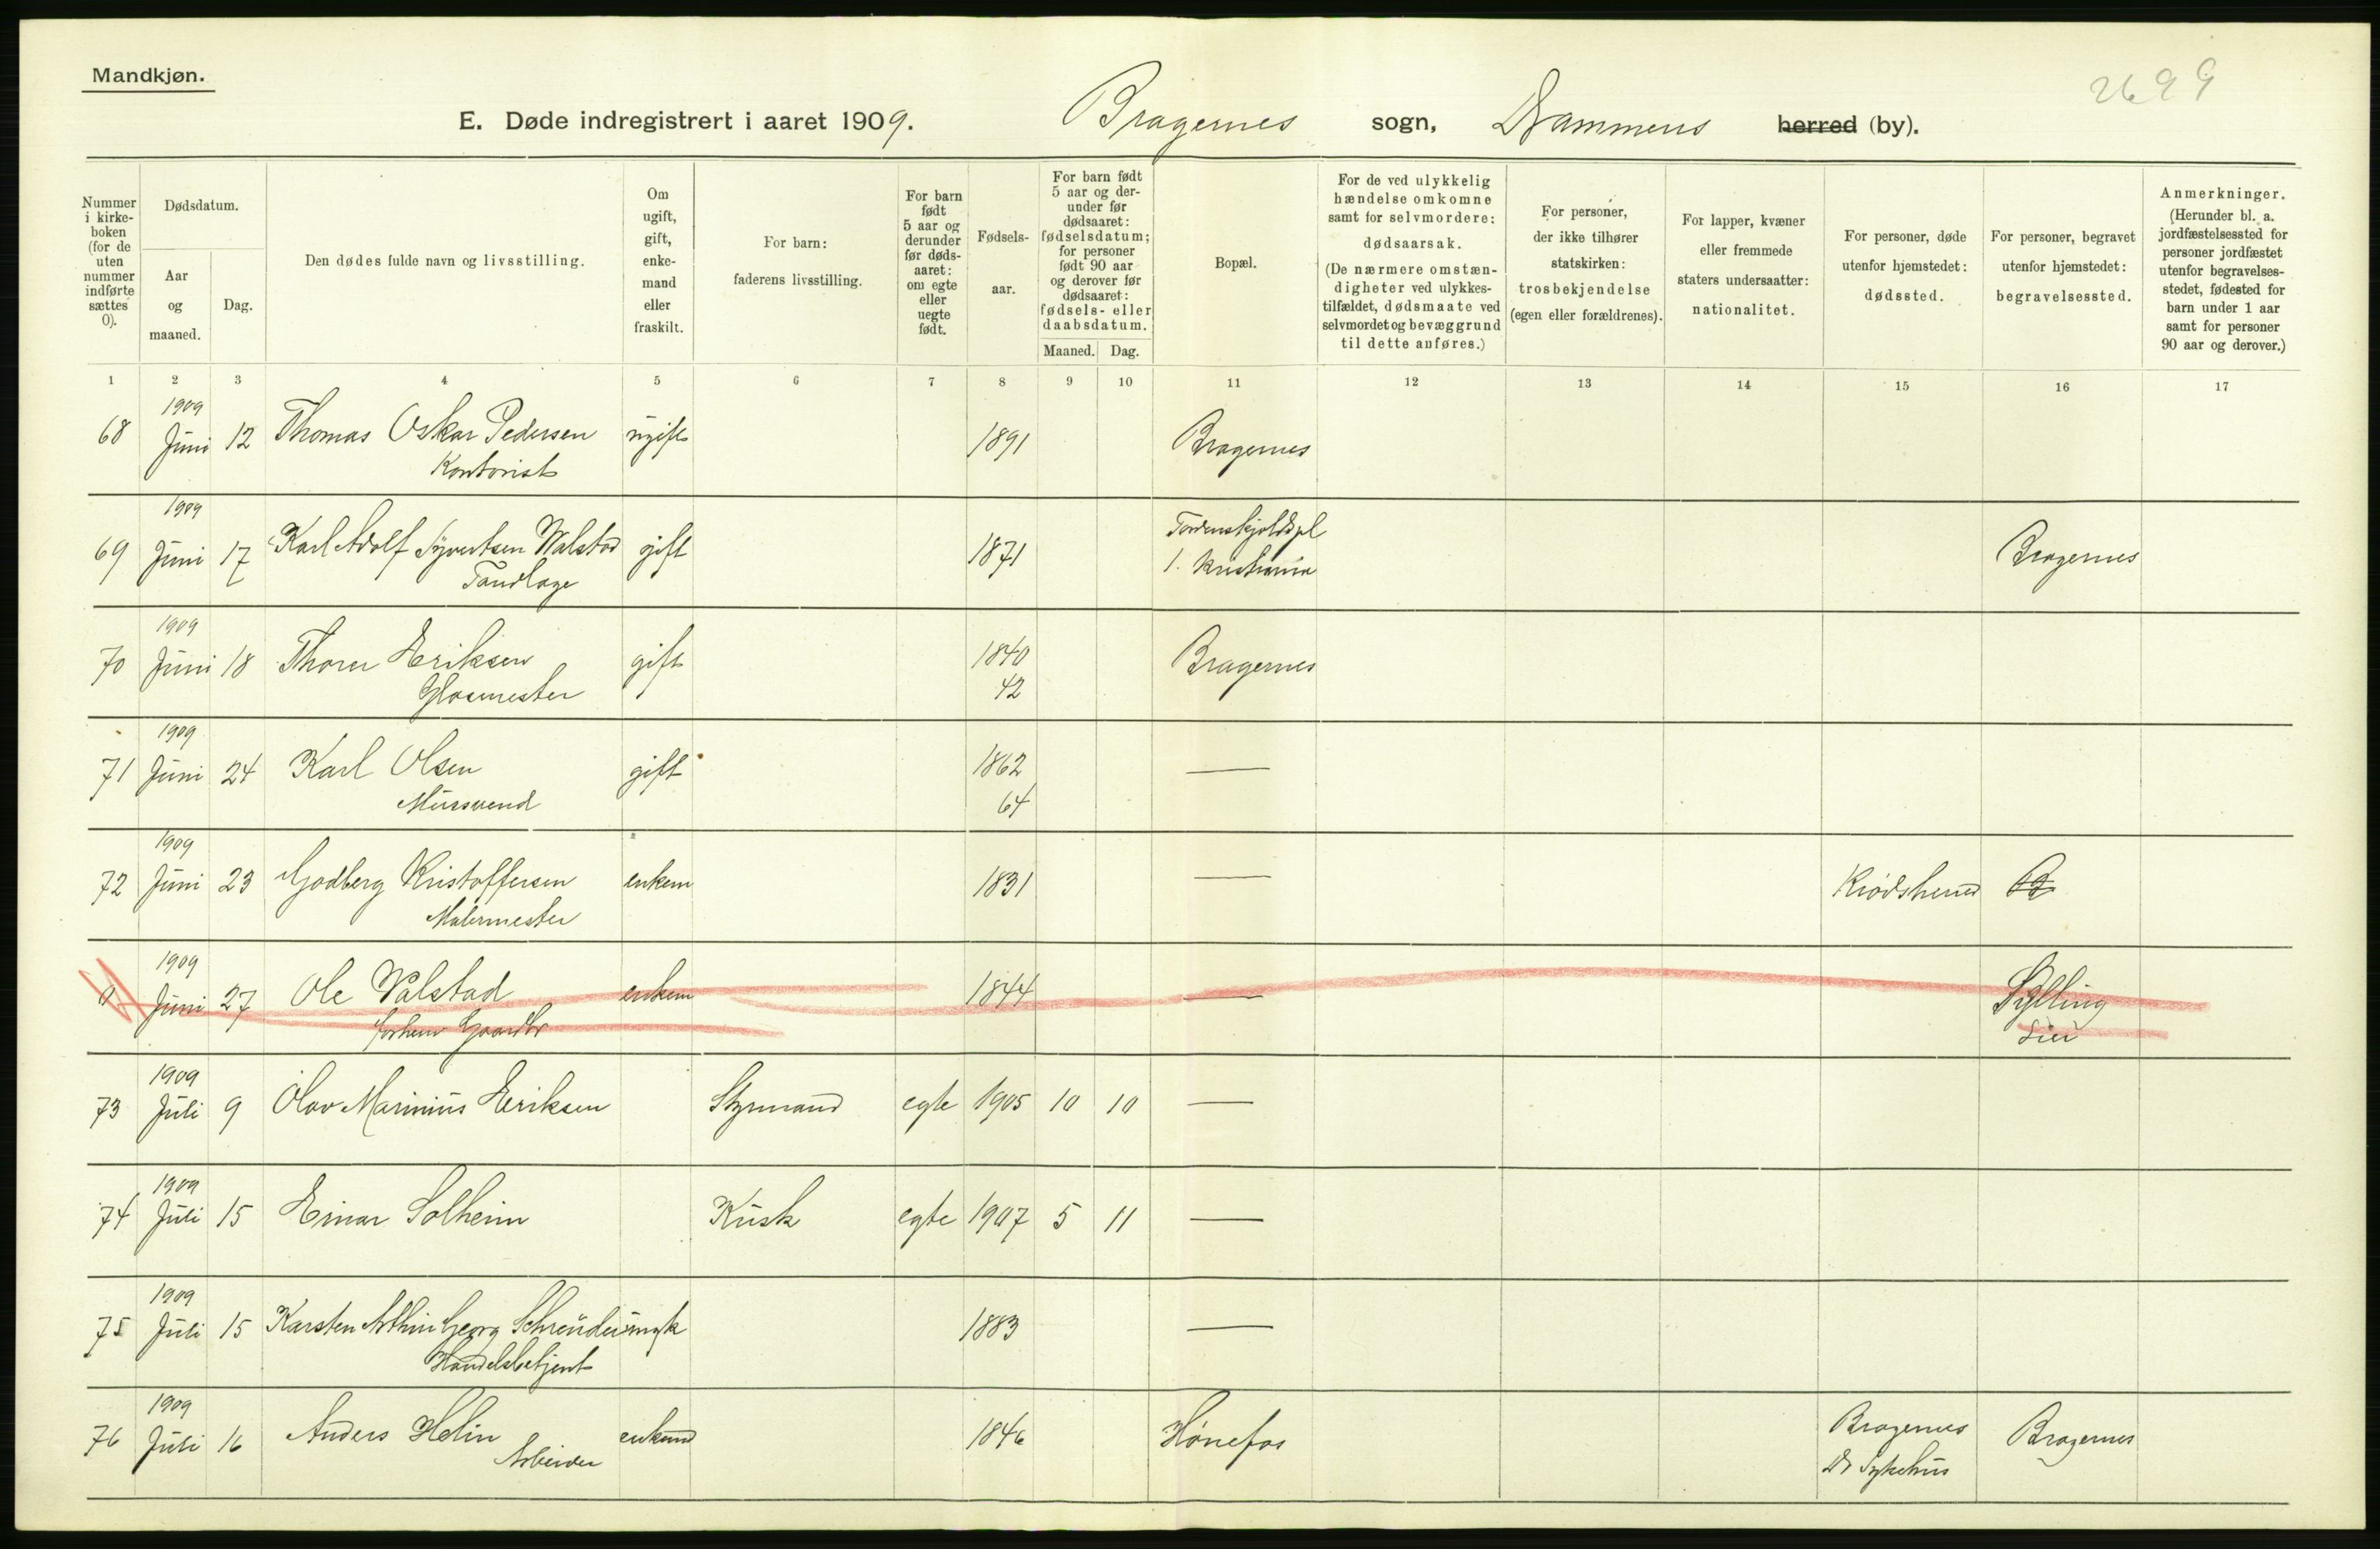 Mandkjøn.
2699
E. Døde indregistrert i aaret 1909. Bragernes sogn, Drammens herred (by).
Nummer i kirke-boken (for de uten nummer indførte sættes 0).
Dødsdatum.
Aar og maaned.
Dag.
Den dødes fulde navn og livsstilling.
Om ugift, gift, enke-mand eller fraskilt.
For barn: faderens livsstilling.
For barn født 5 aar og derunder før døds-aaret: om egte eller uegte født.
Fødsels-aar.
For barn født 5 aar og der-under før dødsaaret: fødselsdatum; for personer født 90 aar og derover før dødsaaret: fødsels- eller daabsdatum.
Maaned. Dag.
Bopæl.
For de ved ulykkelig hændelse omkomne samt for selvmordere: dødsaarsak. (De nærmere omstæn-digheter ved ulykkes-tilfældet, dødsmaate ved selvmordet og bevæggrund til dette anføres.)
For personer, der ikke tilhører statskirken: trosbekjendelse (egen eller forældrenes).
For lapper, kvæner eller fremmede staters undersaatter: nationalitet.
For personer, døde utenfor hjemstedet: dødssted.
For personer, begravet utenfor hjemstedet: begravelsessted.
Anmerkninger. (Herunder bl. a. jordfæstelsessted for personer jordfæstet utenfor begravelses-stedet, fødested for barn under 1 aar samt for personer 90 aar og derover.)
1 2 3 4 5 6 7 8 9 10 11 12 13 14 15 16 17
1909
68 Juni 12 Thomas Oskar Pedersen ugift 1891 Bragernes
Kontorist
1909 Tordenskjoldspl
69 Juni 17 Karl Adolf Syvertsen Walstad gift 1871 1. Kristiania Bragernes
Tandlæge
1909
70 Juni 18 Thorer Eriksen gift 1840 Bragernes
Glasmester 42
1909
71 Juni 24 Karl Olsen gift 1862 —
Mursvend 64
1909
72 Juni 23 Godberg Kristoffersen enkem 1831 — Krødsherred
Malermester
1909
0 Juni 27 Ole Walstad enkem 1844 — Sylling
forhenv Gaardbr Lier
1909
73 Juli 9 Olav Marinius Eriksen Styrmand egte 1905 10 10 —
1909
74 Juli 15 Einar Solheim Kusk egte 1907 5 11 —
1909
75 Juli 15 Karsten Arthur Georg Schreuder ungk 1883 —
Handelsbetjent
1909
76 Juli 16 Anders Helin enkemd 1846 Hønefos Bragernes Bragernes
Arbeider Dr Sykehus